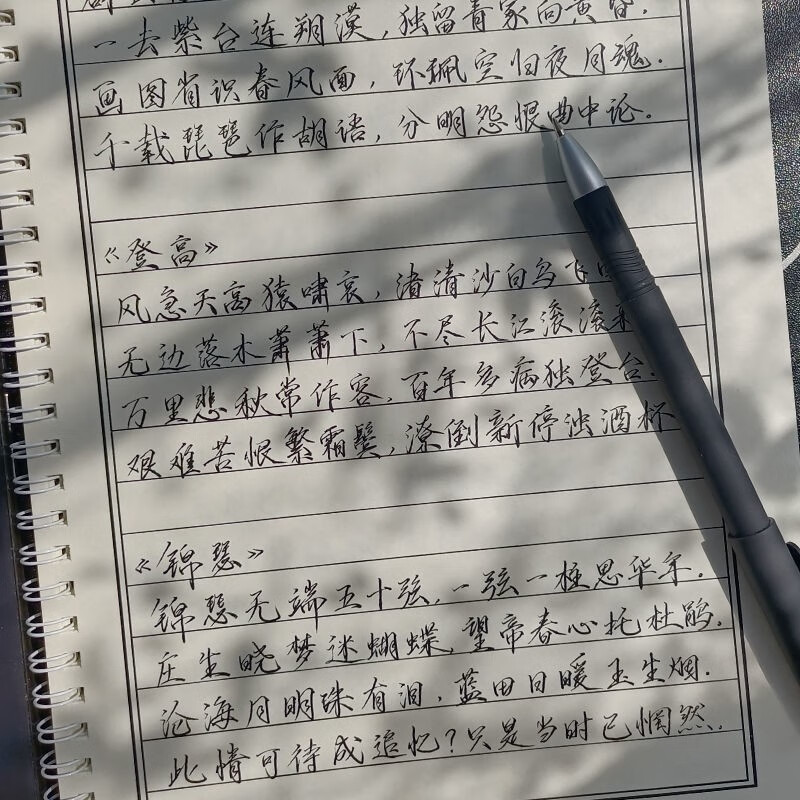 一去紫台连朔漠，独留青冢向黄昏.
画图省识春风面，环珮空归夜月魂.
千载琵琶作胡语，分明怨恨曲中论.
《登高》
风急天高猿啸哀，渚清沙白鸟飞
无边落木萧萧下，不尽长江滚滚来
万里悲秋常作客，百年多病独登台.
艰难苦恨繁霜鬓，潦倒新停浊酒杯
《锦瑟》
锦瑟无端五十弦，一弦一柱思华年.
庄生晓梦迷蝴蝶，望帝春心托杜鹃.
沧海月明珠有泪，蓝田日暖玉生烟.
此情可待成追忆？只是当时已惘然.